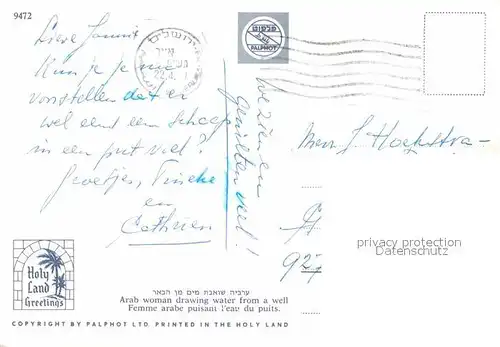 9472
Lieve Jannie
Kun je je nie
voorstellen dat er
wel eens een schaap
in een put viel?
Groetjes, Tineke
en
Cathrien
We zien en
genieten veel!
ירושלים
22.4.
פלפוט
PALPHOT
Mevr. J. Hoekstra-
927
privacy protection
Datenschutz
Holy
Land
Greetings
ערביה שואבת מים מן הבאר
Arab woman drawing water from a well
Femme arabe puisant l'eau du puits.
COPYRIGHT BY PALPHOT LTD. PRINTED IN THE HOLY LAND